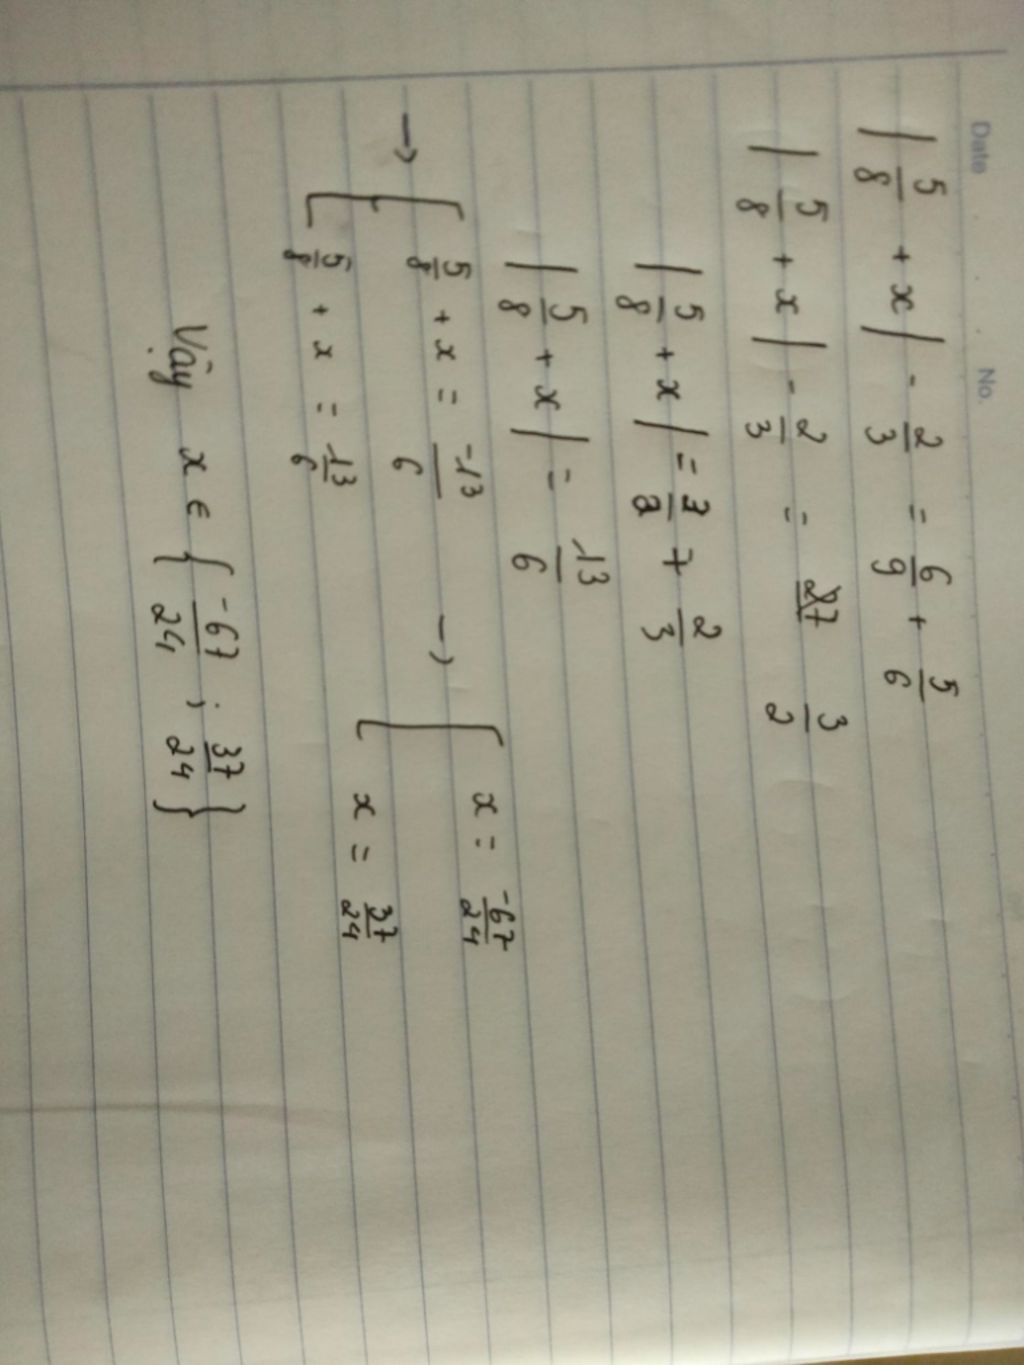 Date No.
|5/8 + x| - 2/3 = 6/9 + 5/6
|5/8 + x| - 2/3 = 3/2
|5/8 + x| = 3/2 + 2/3
|5/8 + x| = 13/6
→ [ 5/8 + x = -13/6 → [ x = -67/24
5/8 + x = 13/6 x = 37/24
Vậy x ∈ { -67/24 ; 37/24 }